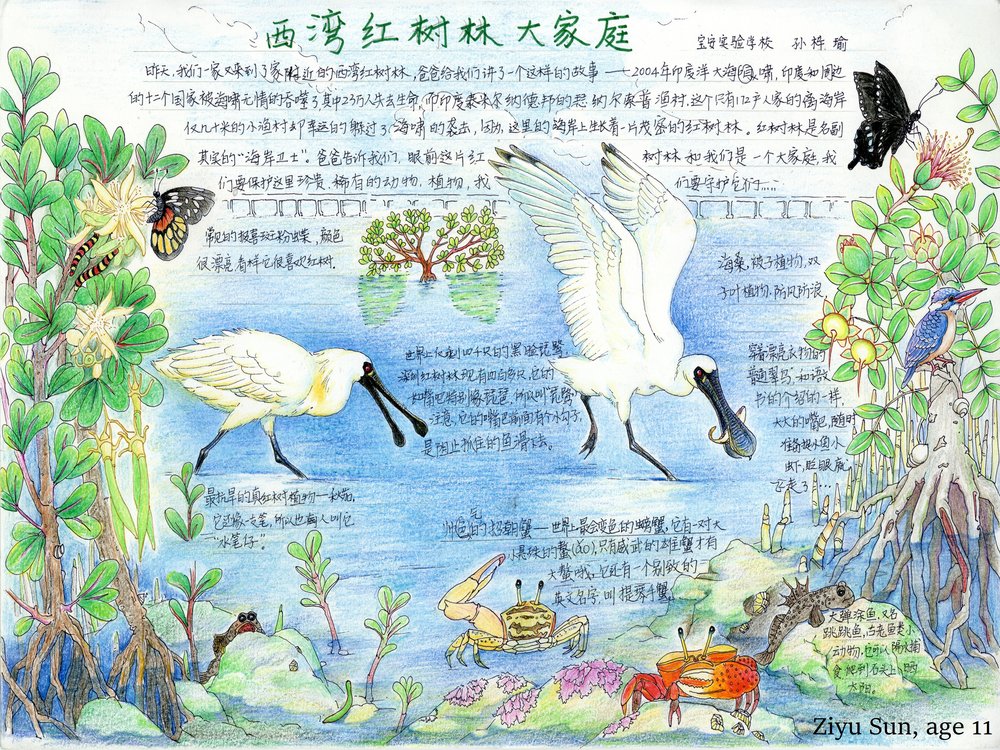 西湾红树林大家庭
宝安实验学校 孙梓瑜
昨天,我们一家又来到了家附近的西湾红树林,爸爸给我们讲了一个这样的故事——2004年印度洋大海啸,印度和周边
的十二个国家被海啸无情的吞噬了其中23万人失去生命,而印度泰米尔纳德邦的瑟纳尔索普渔村,这个只有172户人家的离海岸
仅几十米的小渔村却幸运的躲过了海啸的袭击,因为,这里的海岸上生长着一片茂密的红树林。红树林是名副
其实的“海岸卫士”。爸爸告诉我们,眼前这片红树林和我们是一个大家庭,我
们要保护这里珍贵、稀有的动物、植物,我们要守护它们……
常见的报喜斑粉蝶,颜色
很漂亮,看样它很喜欢红树.
海桑,被子植物,双
子叶植物,防风防浪.
世界上仅剩四千只的黑脸琵鹭
深圳红树林现有四百多只,它的
如嘴巴特别像琵琶,所以叫“琵鹭”
注意,它的嘴巴前面有个小勾子,
是阻止抓住的鱼滑下去。
穿着漂亮衣物的
普通翠鸟,和语文
书的介绍的一样,
大大的嘴巴,随时
准备捉小鱼小
虾,眨眼庋
飞走了……
最抗旱的真红树植物——秋茄,
它还像一支笔,所以也有人叫它
“水笔仔”。
帅气的招潮蟹——世界上最会变色的螃蟹,它有一对大
小悬殊的螯(áo),只有威武的雄蟹才有
大螯哦,它还有一个别致的
英文名字,叫提琴手蟹。
大弹涂鱼,又名
跳跳鱼,古老鱼类小
动物,它可以离水捕
食爬到石头上晒
太阳。
Ziyu Sun, age 11